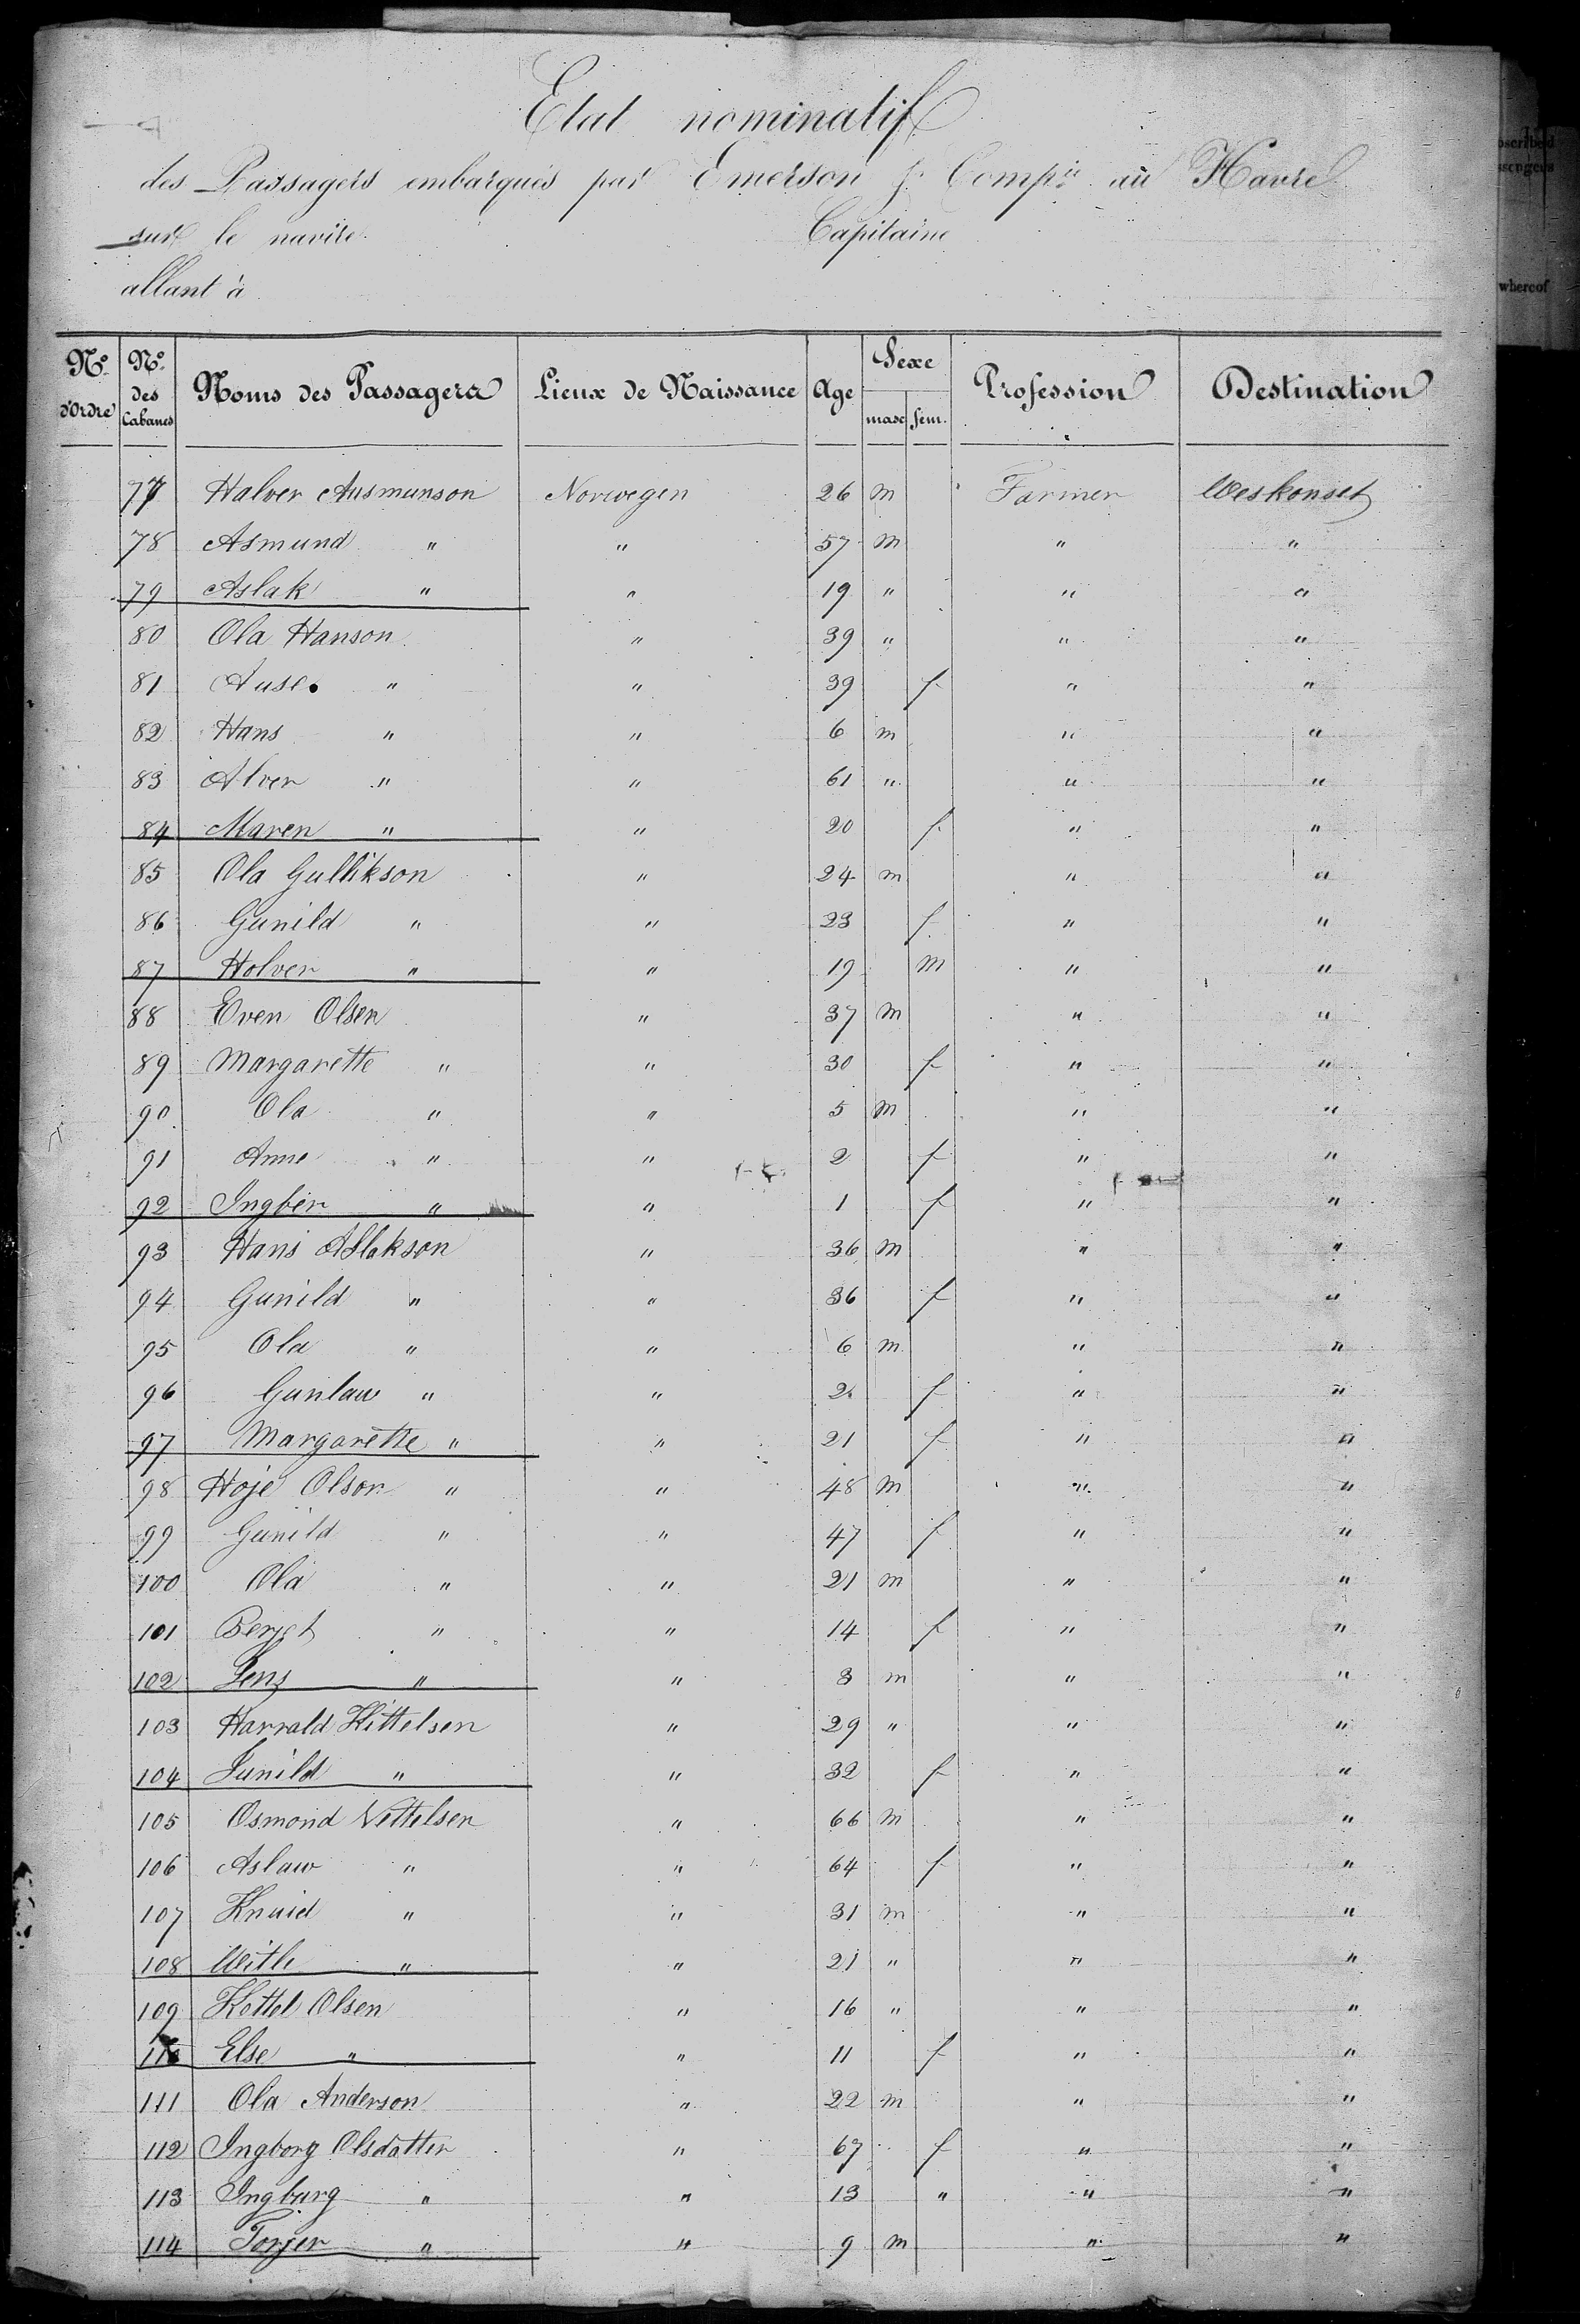 Etat nominatif
des Passagers embarqués par Emerson & Compie au Havre
sur le navire Capitaine
allant à
No. d'Ordre No. des Cabanes Noms des Passagers Lieux de Naissance Age Sexe masc fém. Profession Destination
77 Halver Ausmunson Norwegen 26 m Farmer Weskonset
78 Asmund " " 57 m " "
79 Aslak " " 19 " " "
80 Ola Hanson " 39 " " "
81 Ause " " 39 f " "
82 Hans " " 6 m " "
83 Alver " " 61 " " "
84 Maren " " 20 f " "
85 Ola Gullikson " 24 m " "
86 Gunild " " 23 f " "
87 Holver " " 19 m " "
88 Even Olsen " 37 m " "
89 Margarette " " 30 f " "
90 Ola " " 5 m " "
91 Anne " " 2 f " "
92 Ingber " " 1 f " "
93 Hans Aslakson " 36 m " "
94 Gunild " " 36 f " "
95 Ola " " 6 m " "
96 Gunlaw " " 2 f " "
97 Margarette " " 21 f " "
98 Hoje Olson " " 48 m " "
99 Gunild " " 47 f " "
100 Ola " " 21 m " "
101 Berget " " 14 f " "
102 Jens " " 8 m " "
103 Harrald Kittelsen " 29 " " "
104 Gunild " " 32 f " "
105 Osmond Nettelsen " 66 m " "
106 Aslaw " " 64 f " "
107 Knuid " " 31 m " "
108 " " 21 " " "
109 Kettel Olsen " 16 " " "
110 Else " " 11 f " "
111 Ola Anderson " 22 m " "
112 Ingborg Olsdatter " 67 f " "
113 Ingburg " " 13 " " "
114 Torjer " " 9 m " "
scribed
ssengers
whereof